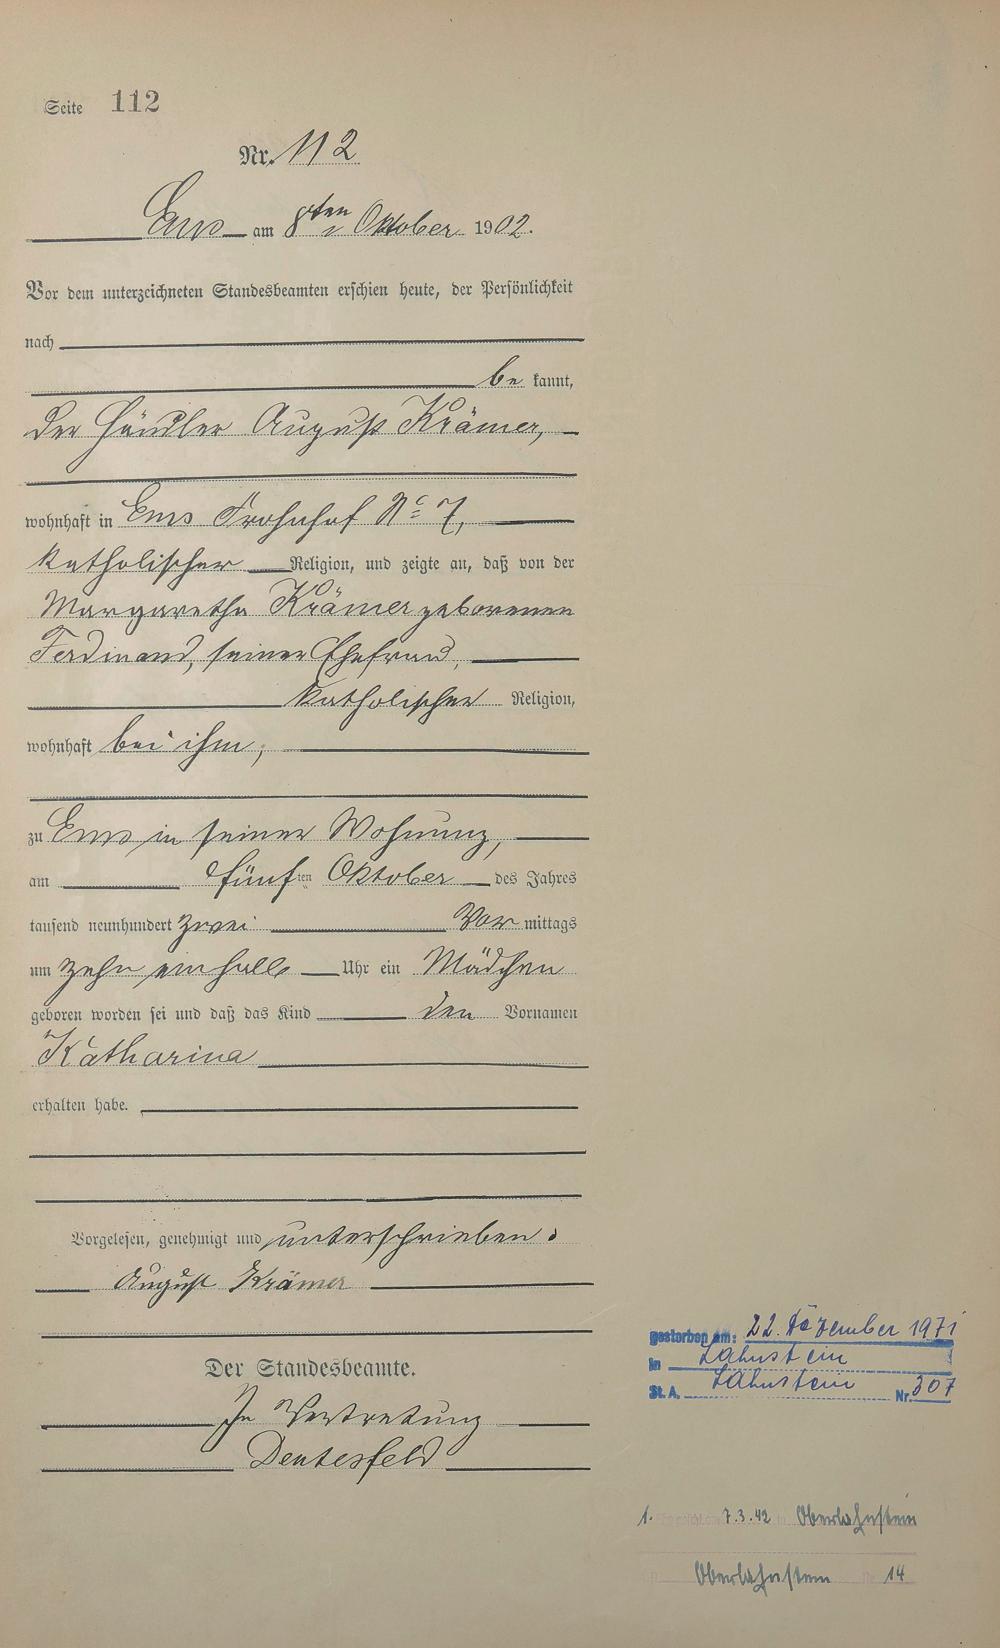 Seite 112
Nr. 112
Ems am 8ten Oktober 1902.
Vor dem unterzeichneten Standesbeamten erschien heute, der Persönlichkeit
nach
be kannt,
der Händler August Krämer,
wohnhaft in Ems Fronhof No 7,
katholischer Religion, und zeigte an, daß von der
Margaretha Krämer geborenen
Ferdinand, seiner Ehefrau,
katholischer Religion,
wohnhaft bei ihm,
zu Ems in seiner Wohnung,
am fünften Oktober des Jahres
tausend neunhundert zwei Vor mittags
um zehn einhalb Uhr ein Mädchen
geboren worden sei und daß das Kind den Vornamen
Katharina
erhalten habe.
Vorgelesen, genehmigt und unterschrieben.
August Krämer
Der Standesbeamte.
In Vertretung
gestorben am: 22. Dezember 1971
in Lahnstein
St. A. Lahnstein Nr. 307
1. 7.3.42 Oberlahnstein
Oberlahnstein 14